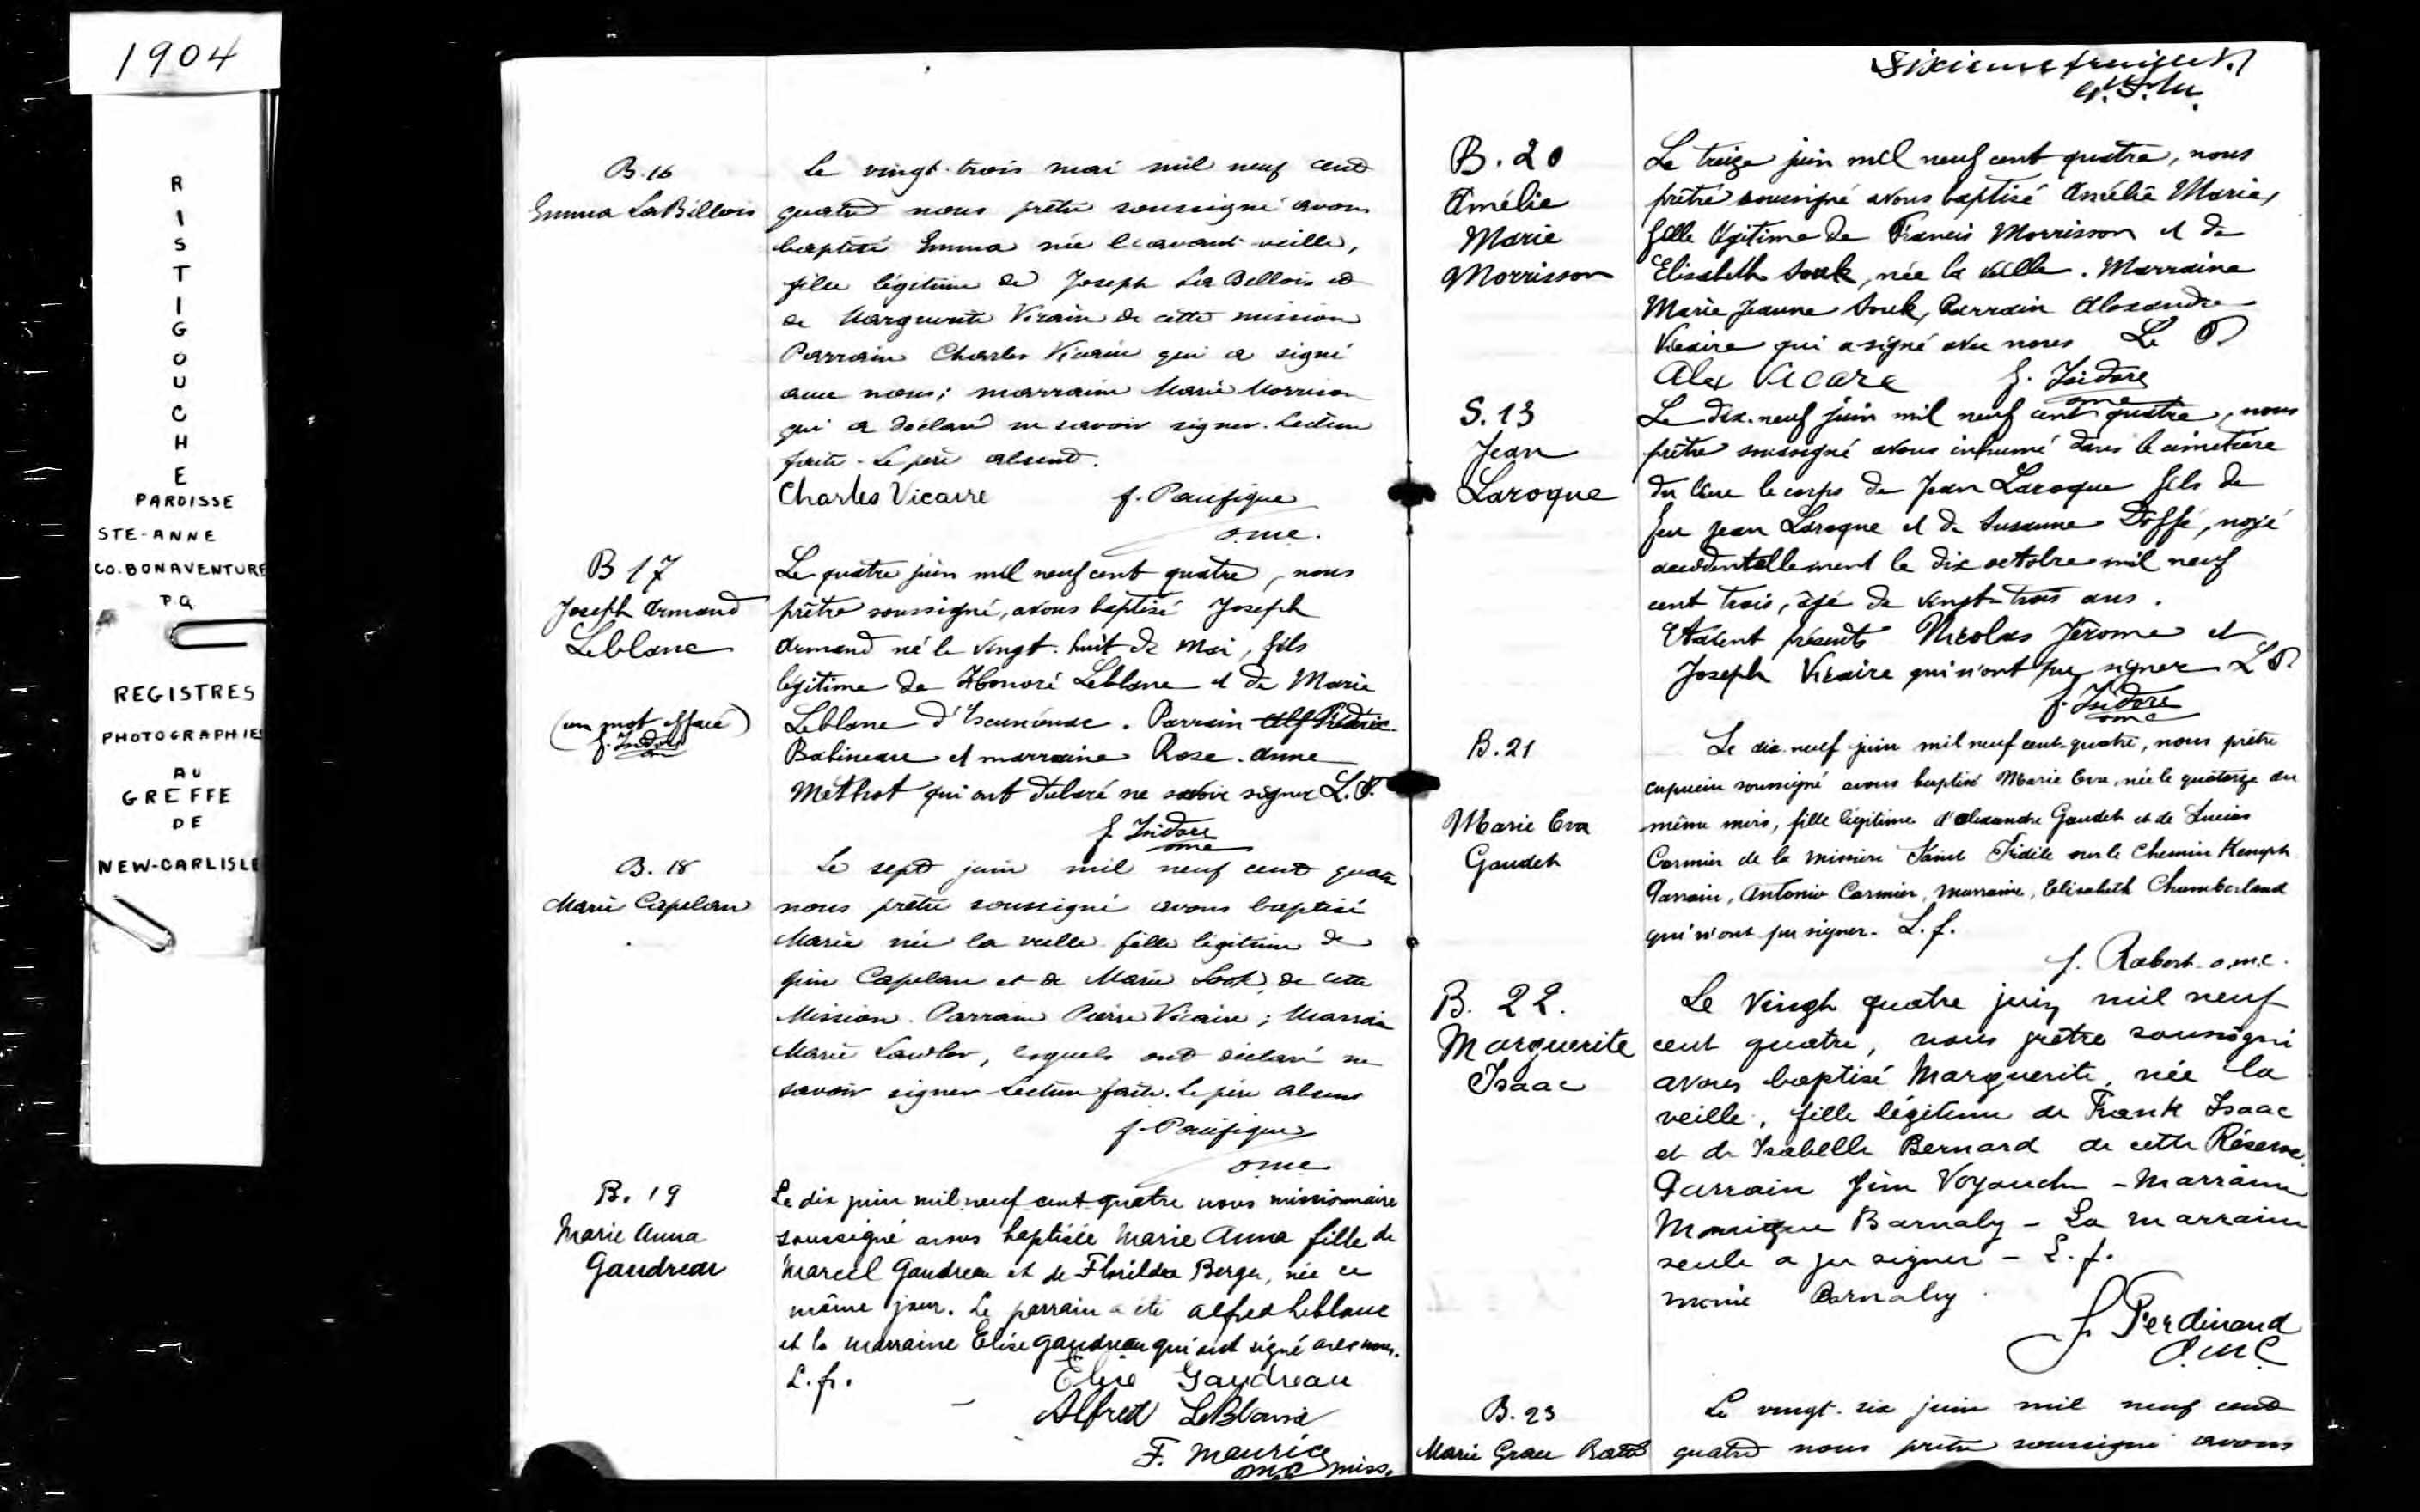 1904
RISTIGOUCHE
PAROISSE
STE-ANNE
CO. BONAVENTURE
P.Q
REGISTRES
PHOTOGRAPHIES
AU
GREFFE
DE
NEW-CARLISLE
B.16
Emma LaBillois
Le vingt-trois mai mil neuf cent
quatre nous prêtre soussigné avons
baptisé Emma née l'avant-veille,
fille légitime de Joseph La Billois et
de Marguerite Vicaire de cette mission
Parrain Charles Vicaire qui a signé
avec nous; marraine Marie Morrison
qui a déclaré ne savoir signer. Lecture
faite - Le père absent.
Charles Vicaire f. Pacifique
o.m.c.
B 17
Joseph Armand
Leblanc
(un mot effacé)
f. Isidore
Le quatre juin mil neuf cent quatre, nous
prêtre soussigné, avons baptisé Joseph
Armand né le vingt-huit de Mai, fils
légitime de Honoré Leblanc et de Marie
Leblanc d'Escuminac. Parrain Frédéric
Babineau et marraine Rose-Anne
Méthot qui ont déclaré ne savoir signer L.F.
f. Isidore
omc
B.18
Marie Capelan
Le sept juin mil neuf cent quatre
nous prêtre soussigné avons baptisé
Marie née la veille fille légitime de
Jim Capelan et de Marie Look de cette
Mission. Parrain Pierre Vicaire; Marraine
Marie Lawlor, lesquels ont déclaré ne
savoir signer. Lecture faite. Le père absent
f. Pacifique
omc
B. 19
Marie Anna
Gaudreau
Le dix juin mil neuf cent quatre nous missionnaire
soussigné avons baptisée Marie Anna fille de
Marcel Gaudreau et de Florilda Berger, née ce
même jour. Le parrain a été Alfred Leblanc
et la marraine Elise Gaudreau qui ont signé avec nous.
L.f.
Elise Gaudreau
Alfred LeBlanc
F. Maurice
omc miss.
Sixième feuillet.
B. 20
Amélie
Marie
Morrisson
Le treize juin mil neuf cent quatre, nous
prêtre soussigné avons baptisé Amélie Marie,
fille légitime de Francis Morrisson et de
Elisabeth Souk, née la veille. Marraine
Marie Jeanne Souk, Parrain Alexandre
Vicaire qui a signé avec nous L F
Alex Vicare f. Isidore
omc
S.13
Jean
Laroque
Le dix-neuf juin mil neuf cent quatre, nous
prêtre soussigné avons inhumé dans le cimetière
du lieu le corps de Jean Laroque fils de
feu Jean Laroque et de Susanne Doffé, noyé
accidentellement le dix octobre mil neuf
cent trois, âgé de vingt-trois ans.
Etaient présents Nicolas Jérome et
Joseph Vicaire qui n'ont pu signer L F
f. Isidore
omc
B.21
Marie Eva
Gaudet
Le dix-neuf juin mil neuf cent-quatre, nous prêtre
capucin soussigné avons baptisé Marie Eva, née le quatorze du
même mois, fille légitime d'Alexandre Gaudet et de
Cormier de la mission Saint Fidèle sur le Chemin Kempt.
Parrain, Antonio Cormier, marraine, Elisabeth Chamberland
qui n'ont pu signer. L.f.
f. Robert o.m.c.
B. 22.
Marguerite
Isaac
Le vingt quatre juin mil neuf
cent quatre, nous prêtre soussigné
avons baptisé Marguerite, née la
veille, fille légitime de Frank Isaac
et de Isabelle Bernard de cette Réserve.
Parrain Jim Voyauch - Marraine
Monique Barnaby - La marraine
seule a pu signer - L.f.
monie Barnaby
f Ferdinand
O.M.C
B.23
Marie Grace
Le vingt-six juin mil neuf cent
quatre nous prêtre soussigné avons